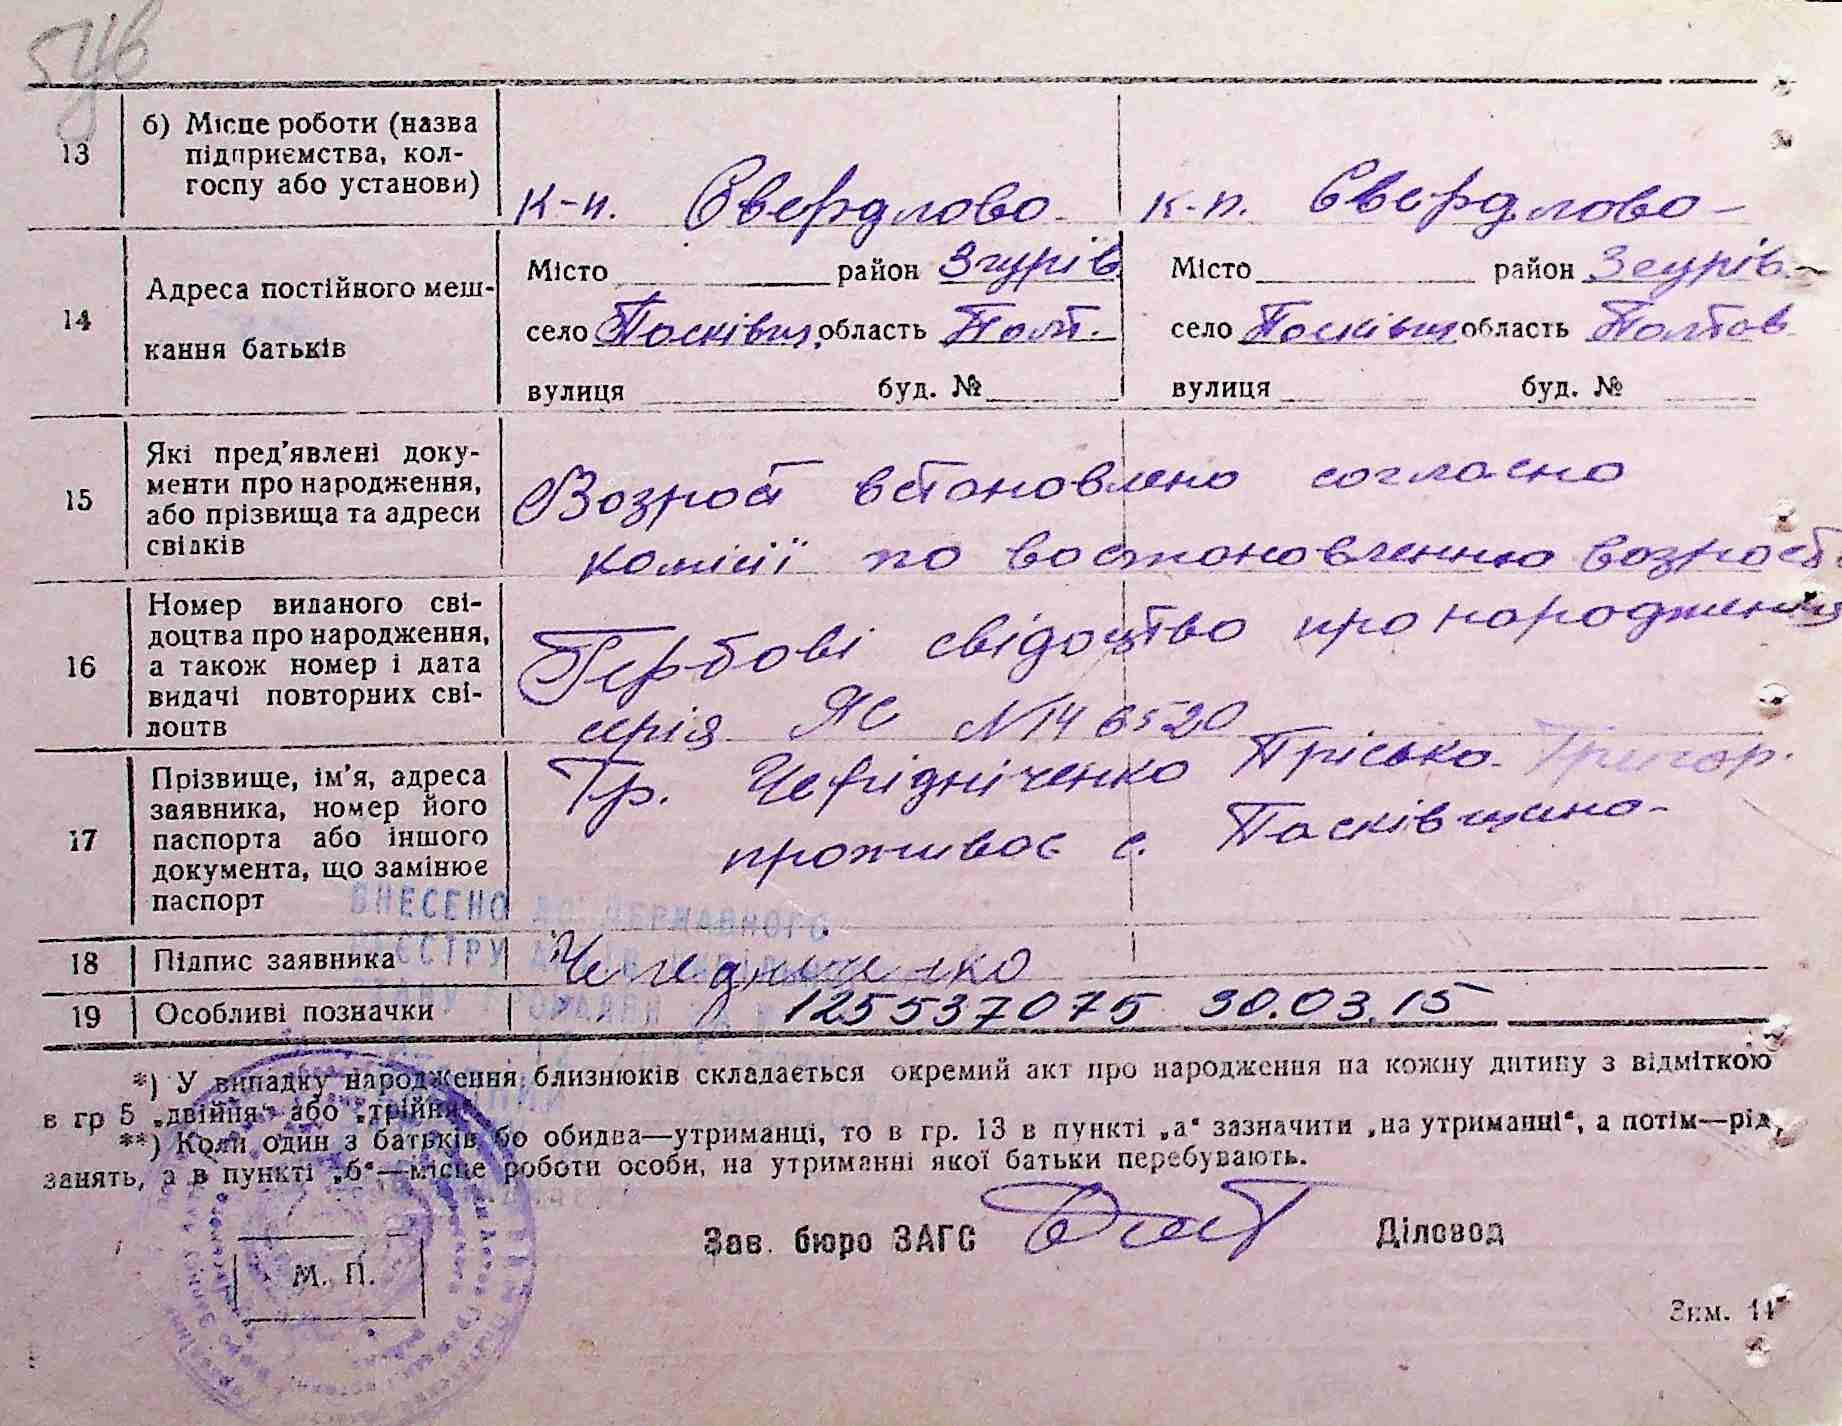 546
13
б) Місце роботи (назва
підприємства, кол-
госпу або установи)
к-п. Свердлово-
к-п. Свердлово-
14
Адреса постійного меш-
кання батьків
Місто район Згурів.
село Пасківщ. область Полт.
вулиця буд. №
Місто район Згурів.
село Пасківщ область Полтав
вулиця буд. №
15
Які пред'явлені доку-
менти про народження,
або прізвища та адреси
свідків
Возраст встановлено согласно
комісії по востановленню возраста
16
Номер виданого сві-
доцтва про народження,
а також номер і дата
видачі повторних сві-
доцтв
Гербові свідоцтво про народження
серія ЯС №146520
17
Прізвище, ім'я, адреса
заявника, номер його
паспорта або іншого
документа, що замінює
паспорт
Гр. Чередніченко Пріська Григор.
проживає с. Пасківщина-
ВНЕСЕНО ДО ДЕРЖАВНОГО
РЕЄСТРУ
18
Підпис заявника
Чередниченко
19
Особливі позначки
125537075 30.03.15
*) У випадку народження близнюків складається окремий акт про народження на кожну дитину з відміткою
в гр 5 „двійня“ або „трійня“
**) Коли один з батьків бо обидва—утриманці, то в гр. 13 в пункті „а“ зазначити „на утриманні“, а потім—рід
занять, а в пункті „б“—місце роботи особи, на утриманні якої батьки перебувають.
Зав. бюро ЗАГС
Діловод
М. П.
Зкм. 14